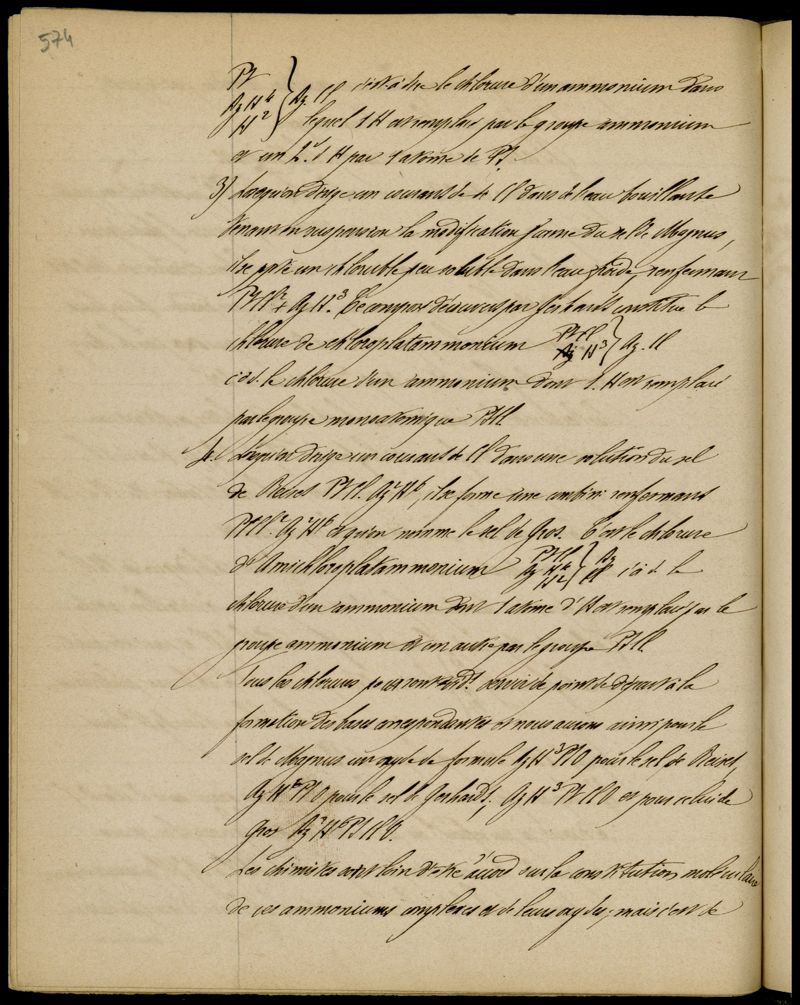 574
Pt
Az H⁴ } Az Cl c'est à dire le chlorure d'un ammonium dans
H² lequel 1 H est remplacé par le groupe ammonium
et un 2ᵈ 1 H par 1 atome de Pt.
3) Lorsqu'on dirige un courant de Cl dans de l'eau bouillante
tenant en suspension la modification jaune du sel de Magnus,
il se un chlorure peu soluble dans l'eau froide, renfermant
PtCl² + Az H³. Ce composé découvert par Gerhardt constitue le
chlorure de chloroplatammonium PtCl
Az H³ } Az. Cl
c.à.d. le chlorure d'un ammonium dont 1. H est remplacé
par le groupe monoatomique PtCl.
4. Lorsqu'on dirige un courant de Cl dans une solution du sel
de Reiset PtCl. Az²H⁶, il se forme une renfermant
PtCl². Az²H⁶ et qu'on nomme le sel de Gros. C'est le chlorure
d'Amchloroplatammonium PtCl
Az H⁴
H² } Az
Cl c'à d. le
chlorure d'un ammonium dont 1 atome d'H est remplacé par le
groupe ammonium et un autre par le groupe PtCl.
Tous les chlorures pourront servir de point de départ à la
formation des bases correspondantes et nous aurons ainsi pour le
sel de Magnus un oxyde de formule Az H³PtO pour le sel de Reiset,
Az²H⁶PtO pour le sel de Gerhardt, Az H³PtClO et pour celui de
Gros Az²H⁶PtClO.
Les chimistes sont loin d'être d'accord sur la constitution moléculaire
de ces ammoniums complexes et de leurs oxydes; mais c'est de